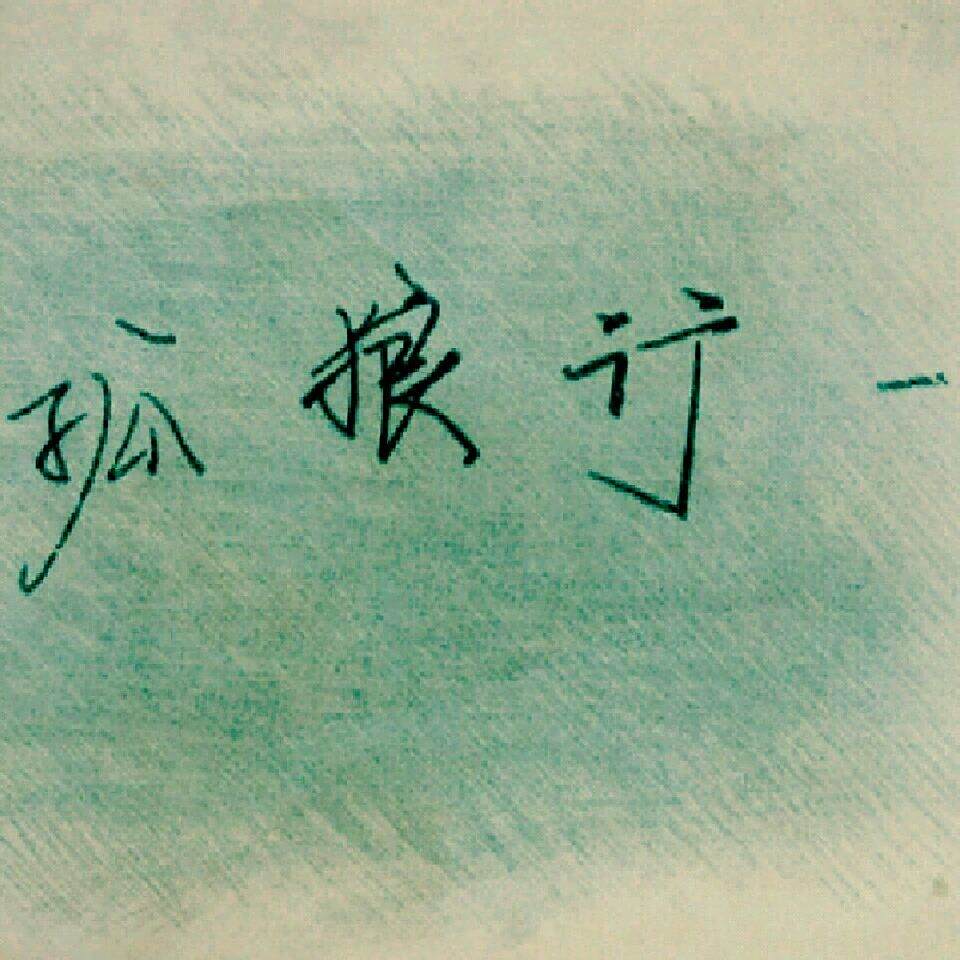 孤狼行一